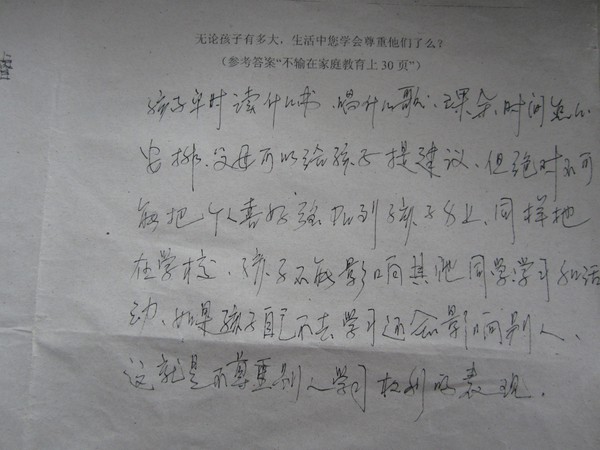 无论孩子有多大，生活中您学会尊重他们了么？
（参考答案“不输在家庭教育上30页”）
孩子平时读什么书、唱什么歌、课余时间怎么
安排、父母可以给孩子提建议、但绝对不可
能把个人喜好强加到孩子身上、同样地
在学校、孩子不能影响其他同学学习和活
动、如果孩子自己不去学习还会影响别人、
这就是不尊重别人学习权利的表现.